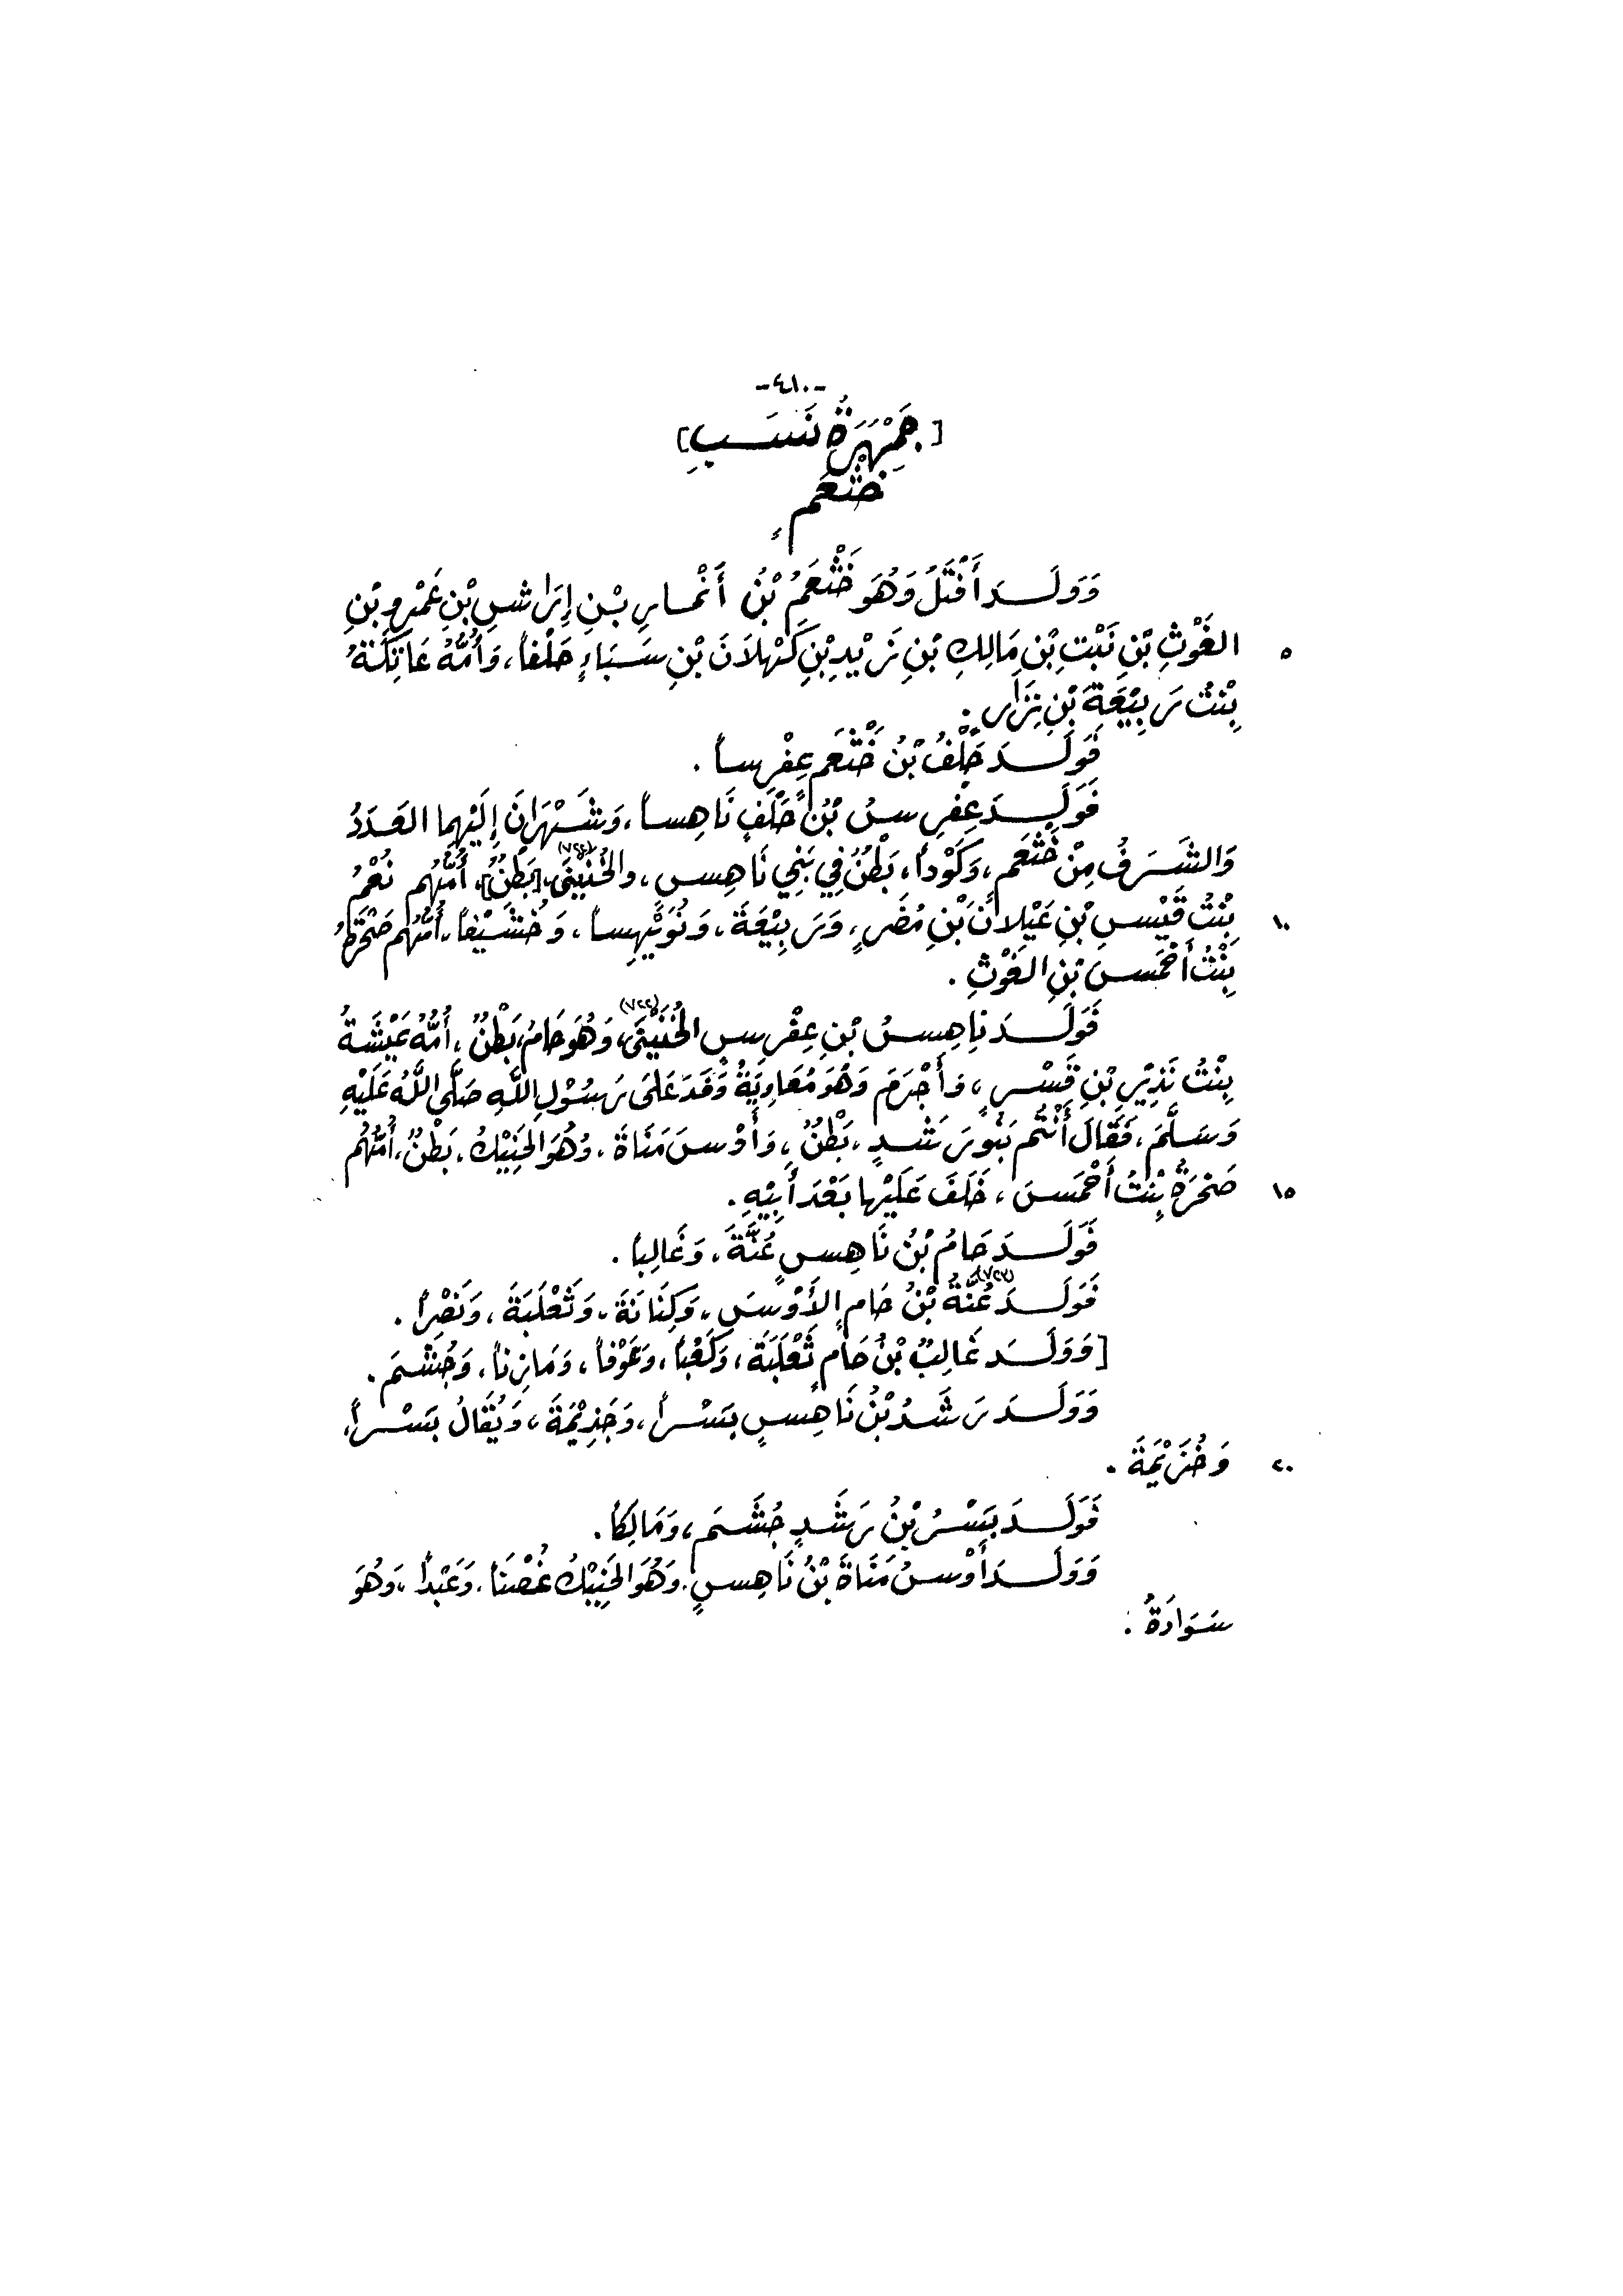 -٤١٠-
[جَمْهَرَةُ نَسَبِ]
خَثْعَمٍ
وَوَلَدَ أَفْتَلُ وَهُوَ خَثْعَمُ بْنُ أَنْمَارِ بْنِ إِرَاشِ بْنِ عَمْرِو بْنِ
٥ الغَوْثِ بْنِ نَبْتِ بْنِ مَالِكِ بْنِ زَيْدِ بْنِ كَهْلَانَ بْنِ سَبَاءٍ حَلْفاً، وَأُمُّهُ عَاتِكَةُ
بِنْتُ رَبِيْعَةَ بْنِ نِزَارٍ.
فَوَلَدَ حَلْفُ بْنُ خَثْعَمٍ عِفْرِساً.
فَوَلَدَ عِفْرِسُ بْنُ حَلْفٍ نَاهِساً، وَشَهْرَانَ إِلَيْهِما العَدَدُ
وَالشَرَفُ مِنْ خَثْعَمٍ، وَكَوْداً، بَطْنٌ فِي بَنِي نَاهِسٍ، والخُنَيْنَى(٧٢٤)، [بَطْنٌ]، أُمُّهُم نُعْمُ
١٠ بِنْتُ قَيْسِ بْنِ عَيْلانَ بْنِ مُضَرٍ، وَرَبِيْعَةَ، وَنُوَيْهِساً، وَخُشَيْفاً، أُمُّهُم صَخْرَةُ
بِنْتُ أَحْمَسَ بْنِ الغَوْثِ.
فَوَلَدَ نَاهِسُ بْنِ عِفْرِسِ الخُنَيْنَى(٧٢٢)، وَهُوَ حَامُ، بَطْنٌ، أُمُّهُ عَيْشَةُ
بِنْتُ نَذِيْرِ بْنِ قَسْرٍ، وَأَجْرَمَ وَهُوَ مُعَاوِيَةُ وَفَدَ عَلَى رَسُوْلِ اللَّهِ صَلَّى اللَّهُ عَلَيْهِ
وَسَلَّمَ، فَقَالَ أَنْتُم بَنُو رَشَدٍ، بَطْنٌ، وَأَوْسَ مَنَاةَ، وَهُوَ الحَنِيْكُ، بَطْنٌ، أُمُّهُم
١٥ صَخْرَةُ بِنْتُ أَحْمَسَ، خَلَفَ عَلَيْها بَعْدَ أَبِيْهِ.
فَوَلَدَ حَامُ بْنُ نَاهِسٍ عُنَّةَ، وَغَالِباً.
فَوَلَدَ عُنَّةُ(٧٢٣) بْنُ حَامٍ الأَوْسَ، وَكِنَانَةَ، وَثَعْلَبَةَ، وَنَصْراً.
[وَوَلَدَ غَالِبُ بْنُ حَامٍ ثَعْلَبَةَ، وَكَعْباً، وَعَوْفاً، وَمَازِناً، وَجُشَمَ.
وَوَلَدَ رَشَدُ بْنُ نَاهِسٍ بَسْراً، وَجَذِيْمَةَ، وَيُقَالُ بَسْراً،
٢٠ وَخُزَيْمَةَ.
فَوَلَدَ بَسْرُ بْنُ رَشَدٍ جُشَمَ، وَمَالِكاً.
وَوَلَدَ أَوْسُ مَنَاةَ بْنُ نَاهِسٍ، وَهُوَ الحَنِيْكُ غُصْناً، وَعَبْداً، وَهُوَ
سَوَادَةُ.